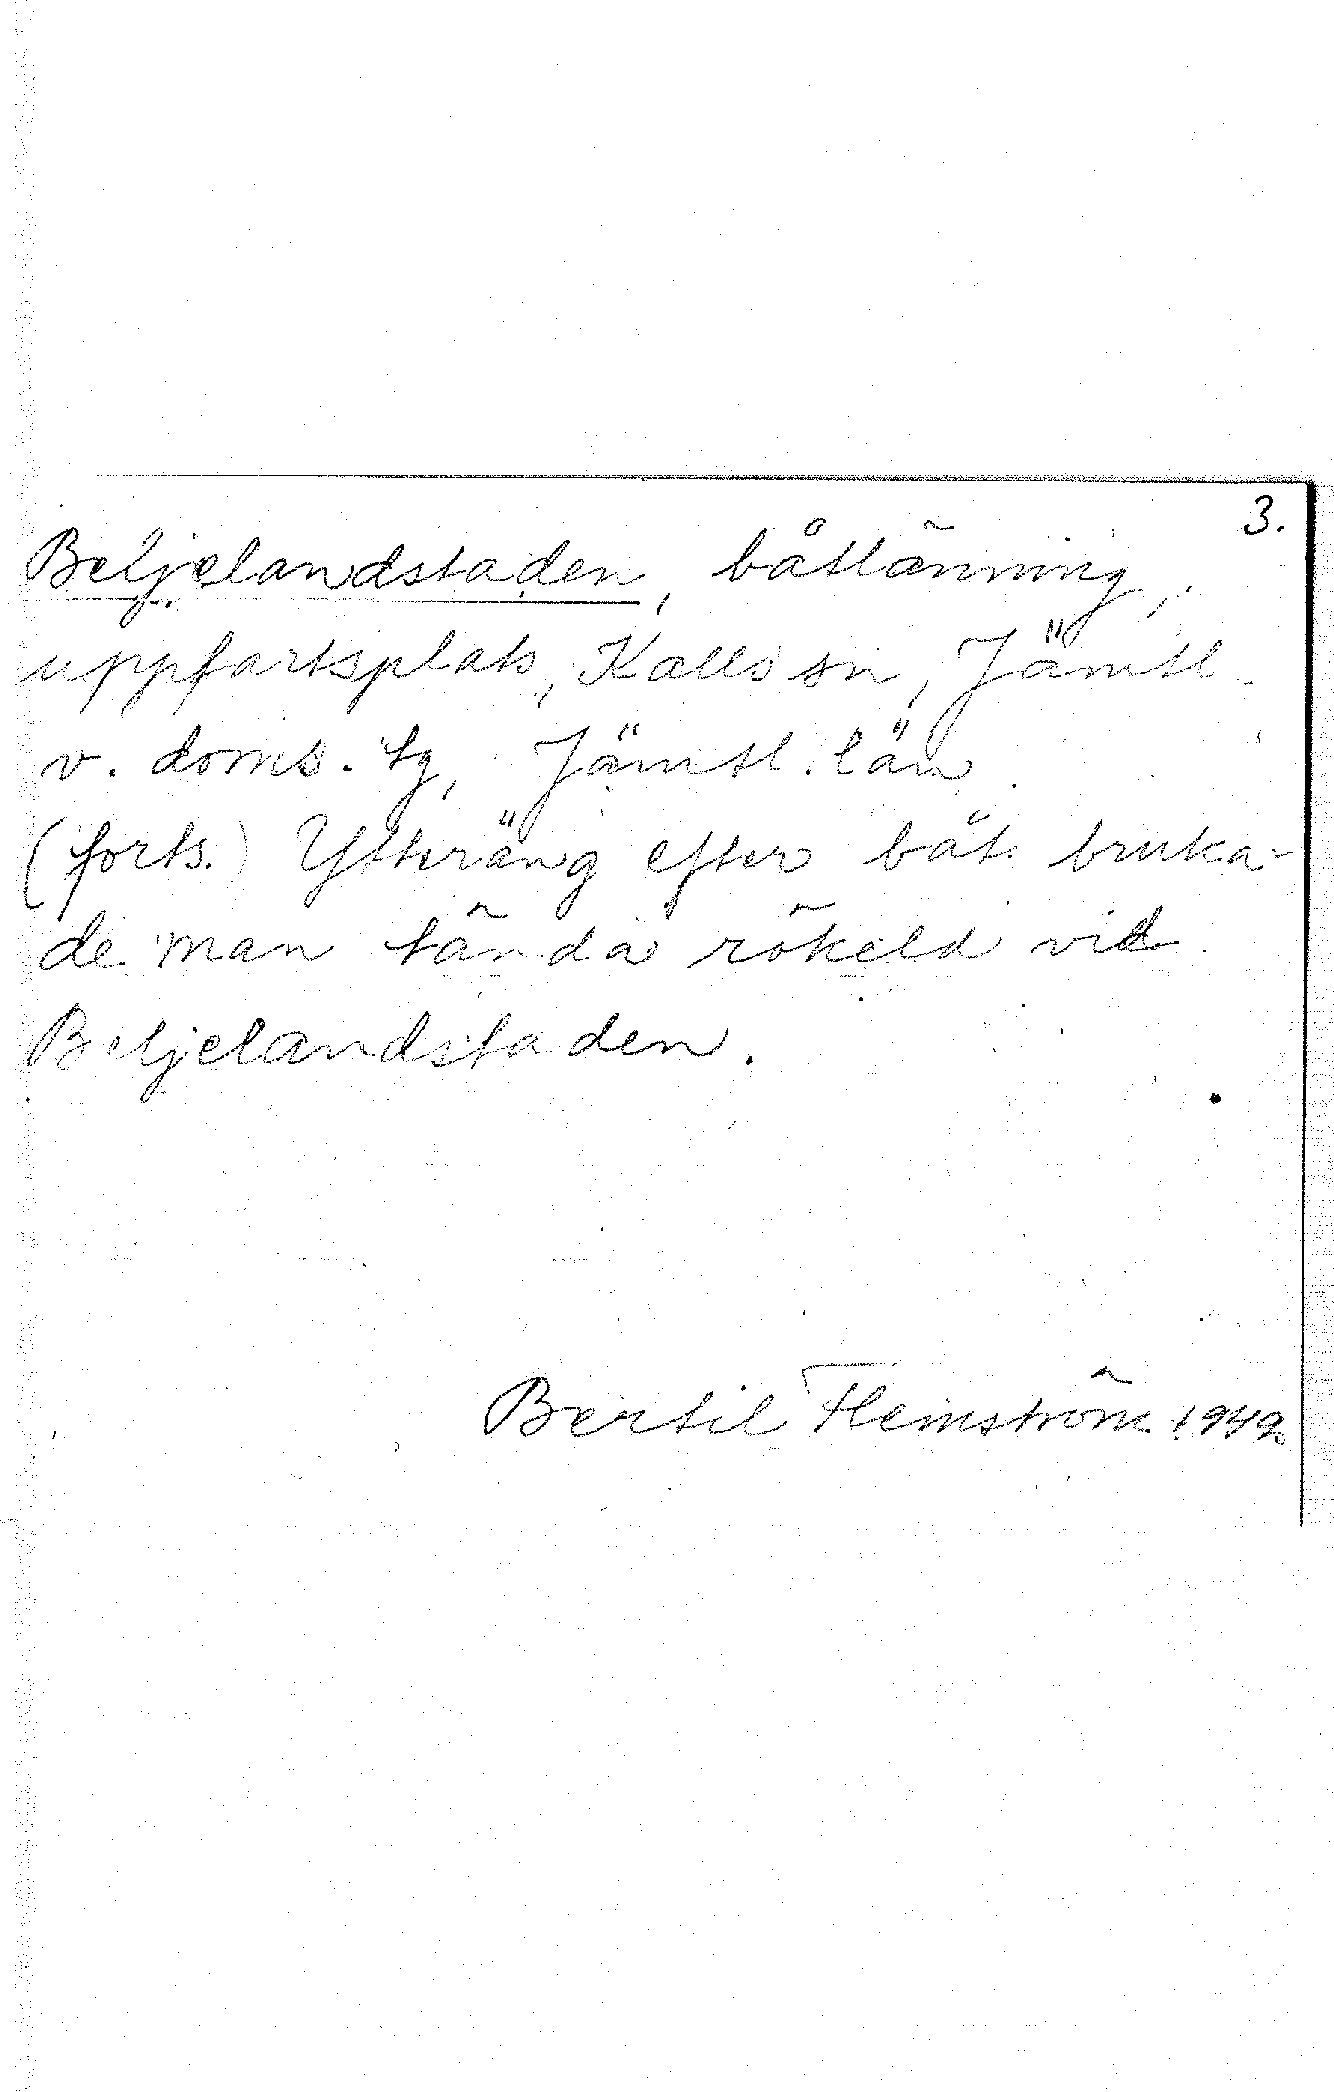 3.
Beljelandstaden, båtlänning,
uppfartsplats, Kalls sn, Jämtl.
v. doms. tg, Jämtl. län
(forts.) Ytteräng efter båt bruka-
de man tända rökeld vid
Beljelandstaden.
Bertil Flemström 1949.